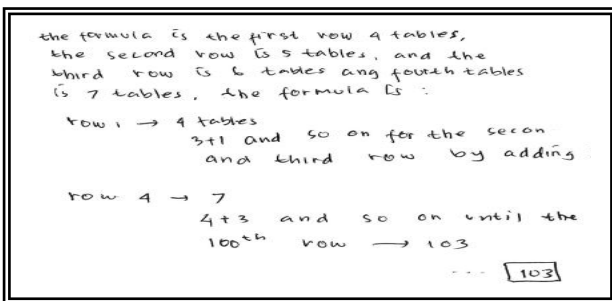 the formula is the first row 4 tables,
the second row is 5 tables, and the
third row is 6 tables ang fourth tables
is 7 tables, the formula is :
row 1 → 4 tables
3+1 and so on for the secon
and third row by adding
row 4 → 7
4 + 3 and so on until the
100th row → 103
... 103